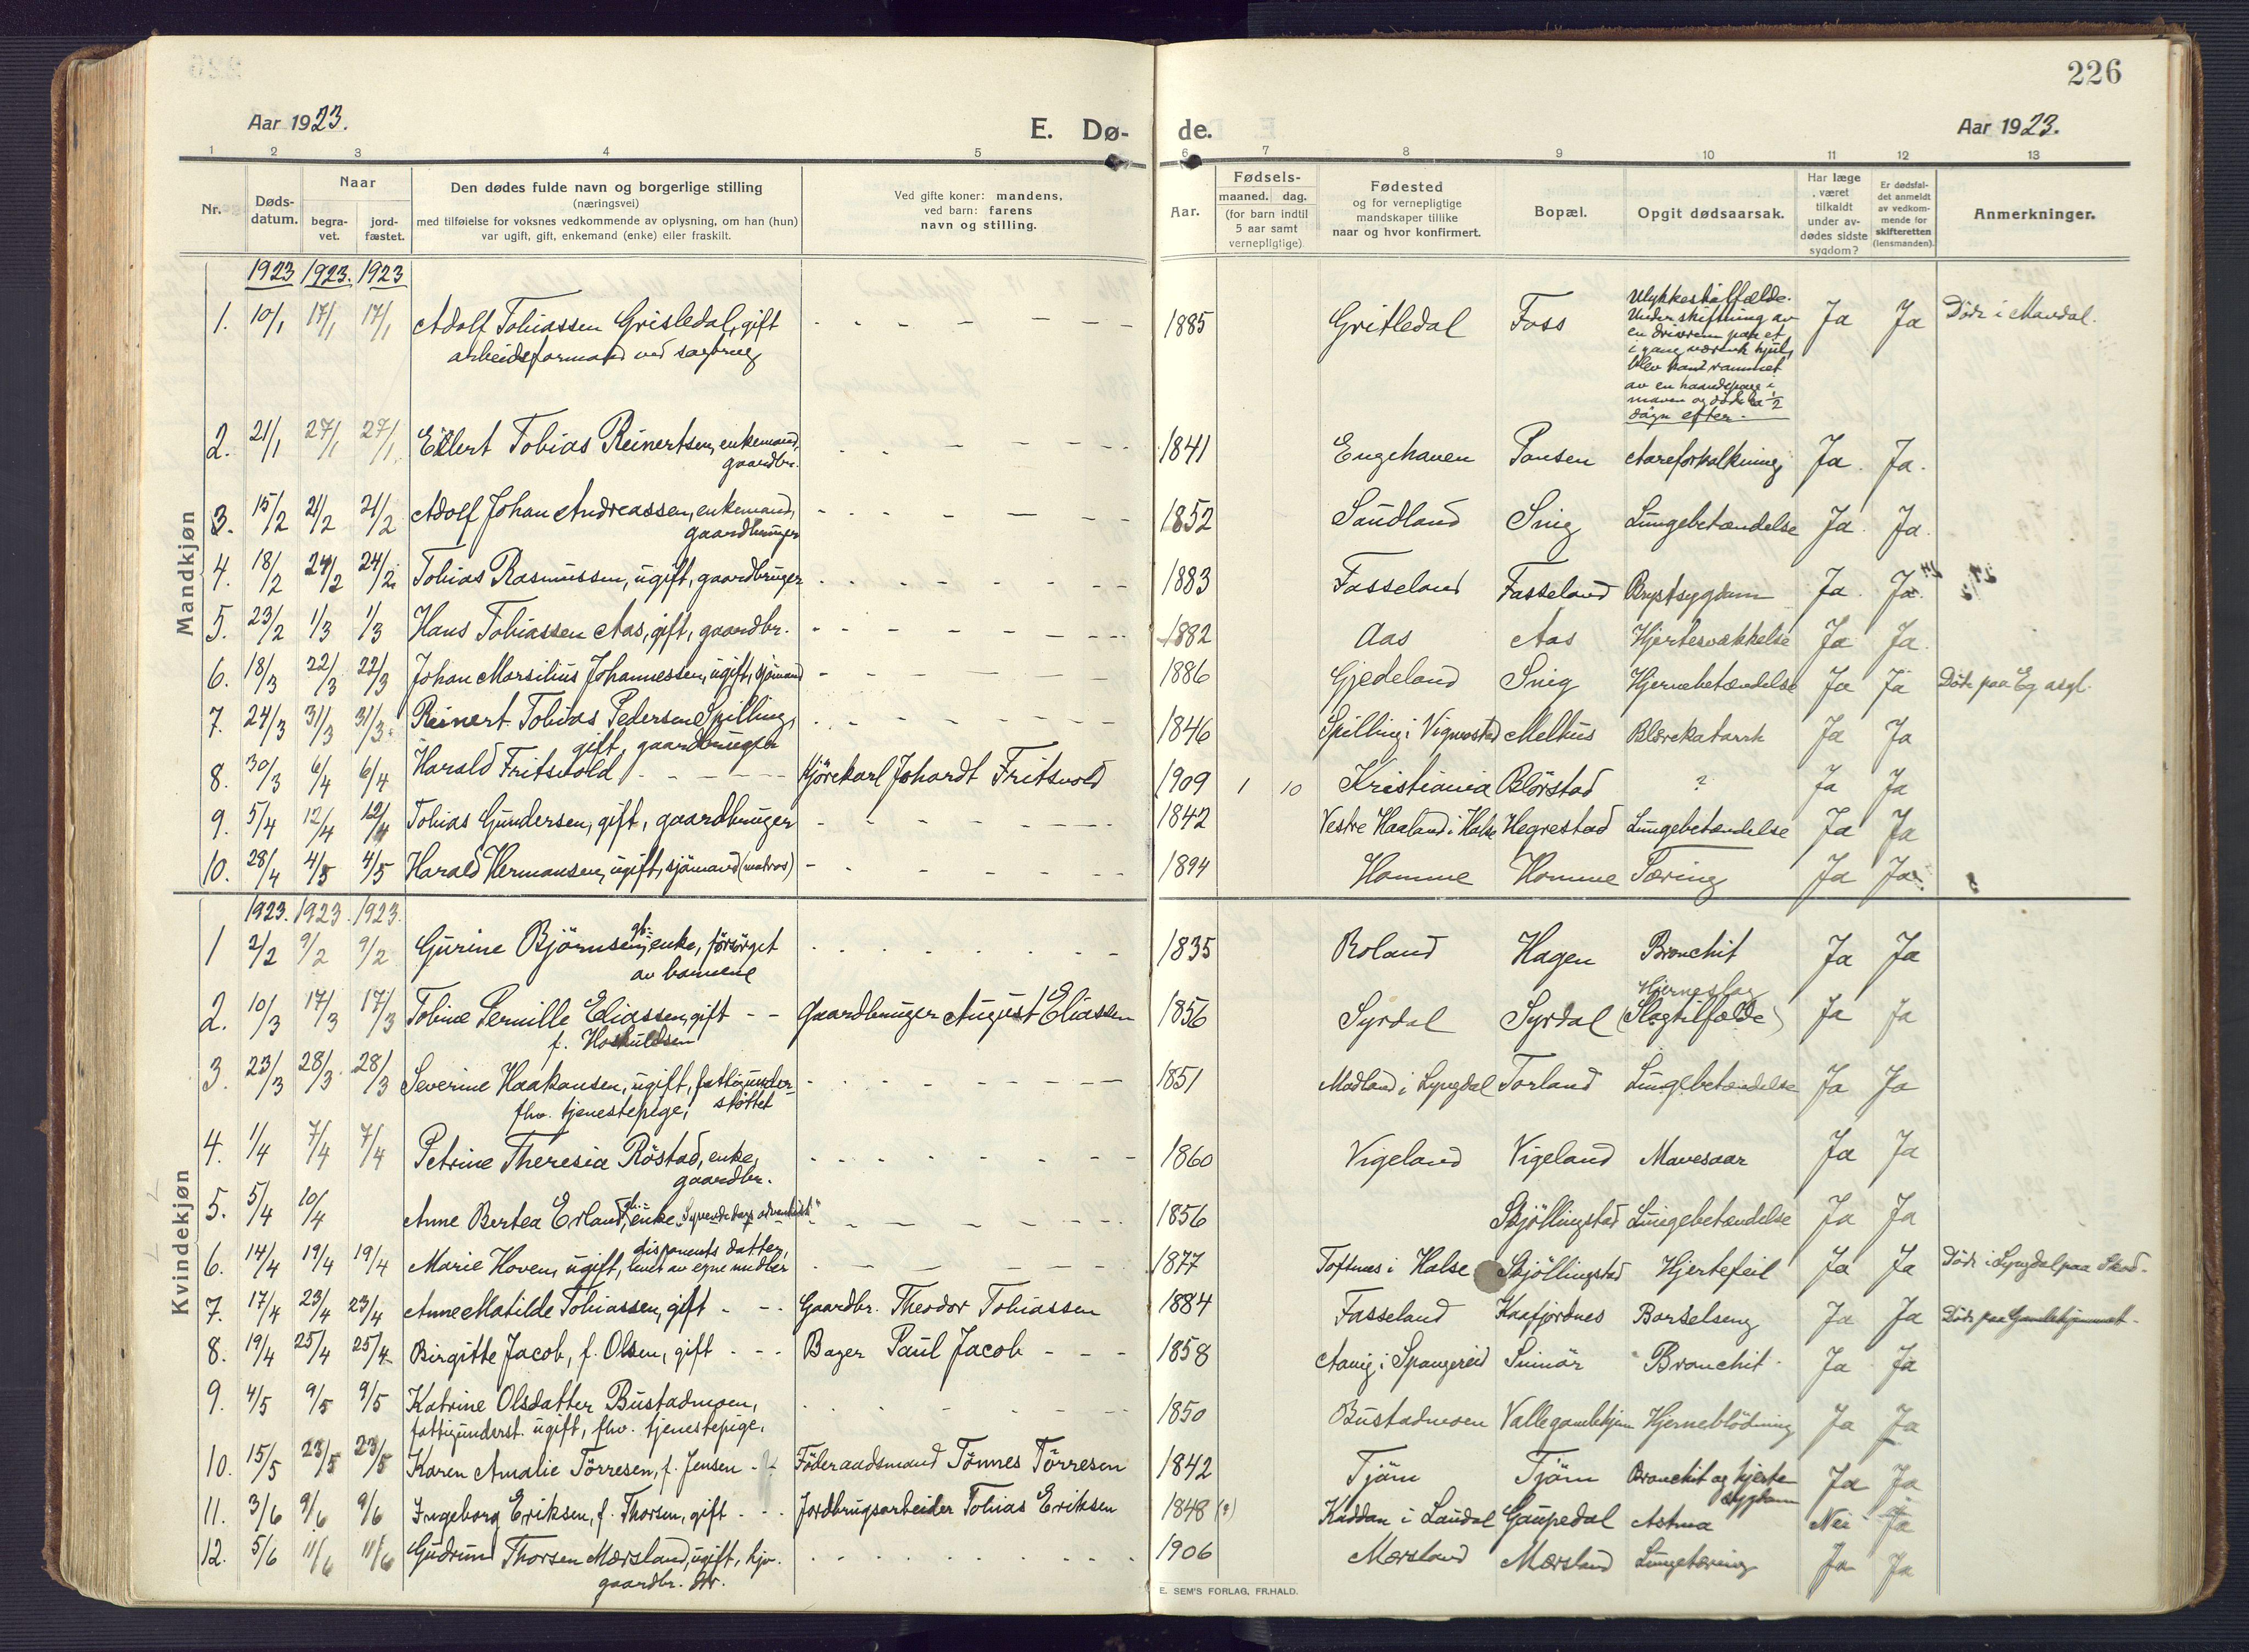 226
Aar 1923.
E. Dø-
de.
Aar 1923.
1 2 3 4 5 6 7 8 9 10 11 12 13
Nr.
Døds-
datum.
Naar
begra-
vet.
jord-
fæstet.
Den dødes fulde navn og borgerlige stilling
(næringsvei)
med tilføielse for voksnes vedkommende av oplysning, om han (hun)
var ugift, gift, enkemand (enke) eller fraskilt.
Ved gifte koner: mandens,
ved barn: farens
navn og stilling.
Aar.
Fødsels-
maaned. dag.
(for barn indtil
5 aar samt
vernepligtige)
Fødested
og for vernepligtige
mandskaper tillike
naar og hvor konfirmert.
Bopæl.
Opgit dødsaarsak.
Har læge
været
tilkaldt
under av-
dødes sidste
sygdom?
Er dødsfal-
det anmeldt
av vedkom-
mende for
skifteretten
(lensmanden).
Anmerkninger.
Mandkjøn
1923 1923. 1923
1. 10/1 17/1 17/1 Adolf Tobiassen Grisledal, gift 1885 Gritledal Foss Ja Ja Døde i Mandal.
arbeidsformand ved sagbrug
Ulykkestilfælde.
Under skiftning av
en drivrem paa et
i gang værende hjul,
blev hand rammet
av en haandspage i
maven og døde ca 1/2
døgn efter.
2. 21/1 27/1 27/1 Eilert Tobias Reinertsen, enkemand, 1841 Engehaven Ja. Ja.
gaardbr. Aareforkalkning
3. 15/2 21/2 21/2 Adolf Johan Andreassen, enkemand, 1852 Saudland Snig Lungebetændelse Ja. Ja.
gaardbruger
4. 18/2 24/2 24/2 Tobias Rasmussen, ugift, gaardbruger 1883 Fasseland Fasseland Brystsygdom Ja. Ja.
5. 23/2 1/3 1/3 Hans Tobiassen Aas, gift, gaardbr. 1882 Aas Aas Hjertesvækkelse Ja Ja.
6. 18/3 22/3 22/3 Johan Marsilius Johannessen, ugift, sjömand 1886 Gjedeland Snig Hjernebetændelse Ja Ja Døde paa Eg asyl.
7. 24/3 31/3 31/3 Reinert Tobias Pedersen Spilling, 1846 Spilling i Vigmostad Melhus Blærekatarrh Ja Ja
gift, gaardbruger
8. 30/3 6/4 6/4 Harald Fritsvold Kjörekarl Johardt Fritsvold 1909 1 10 Kristiania Blörstad ? Ja Ja
9. 5/4 12/4 12/4 Tobias Gundersen, gift, gaardbruger 1842 Vestre Haaland i Halse Hegrestad Lungebetændelse Ja Ja
10. 28/4 4/5 4/5 Harald Hermansen, ugift, sjömand (matros) 1894 Homme Homme Tæring Ja Ja
Kvindekjøn
1923. 1923. 1923.
1 2/2 9/2 9/2 Gurine Björnsen, gb. enke, forsörget 1835 Roland Hagen Bronchit Ja Ja
av barnene
2. 10/3 17/3 17/3 Tobine Pernille Eliassen, gift Gaardbruger August Eliassen 1856 Syrdal Syrdal Hjerneslag (Slagtilfælde) Ja Ja
f. Hoskuldsen
3. 23/3 28/3 28/3 Severine Haakonsen, ugift, fattigunder- 1851 Modland i Lyngdal Torland Lungebetændelse Ja Ja
fhv. tjenestepige, støttet
4. 1/4 7/4 7/4 Petrine Theresia Röstad, enke, 1860 Vigeland Vigeland Mavesaar Ja Ja
gaardbr.
5. 5/4 10/4 Anne Bertea Erland, gb. enke „Syvende dags adventist" 1856 Skjöllingstad Lungebetændelse Ja Ja
6. 14/4 19/4 19/4 Marie Hoven, ugift, disponents datter, 1877 Toftnes i Halse Skjöllingstad Hjertefeil Ja Ja Døde i Lyngdal paa
levet av egne midler
7. 17/4 23/4 23/4 Anne Matilde Tobiassen, gift Gaardbr. Theodor Tobiassen 1884 Fasseland Kaafjordnes Barselseng Ja Ja Døde paa Gamlehjemmet.
8. 19/4 25/4 25/4 Birgitte Jacob, f. Olsen, gift Bager Paul Jacob 1858 Aavig i Spangereid Bronchit Ja Ja
9. 4/5 9/5 9/5 Katrine Olsdatter Bustadmoen, 1850 Bustadmoen Valle gamlehjem Hjerneblödning Ja Ja
fattigunderst. ugift, fhv. tjenestepige.
10. 15/5 23/5 23/5 Karen Amalie Törresen, f. Jensen Föderaadsmand Tönnes Törresen 1842 Tjöm Tjöm Bronchit og hjerte- Ja Ja
sygdom
11. 3/6 9/6 9/6 Ingeborg Eriksen, f. Thorsen, gift Jordbrugsarbeider Tobias Eriksen 1848 (?) Kaddan i Laudal Gaupedal Astma Nei Ja
12. 5/6 11/6 11/6 Gudrund Thorsen Mærsland, ugift, hjv. 1906 Mærsland Mærsland Lungetæring Ja Ja
gaardbr. dtr.
E. SEM'S FORLAG, FR.HALD.